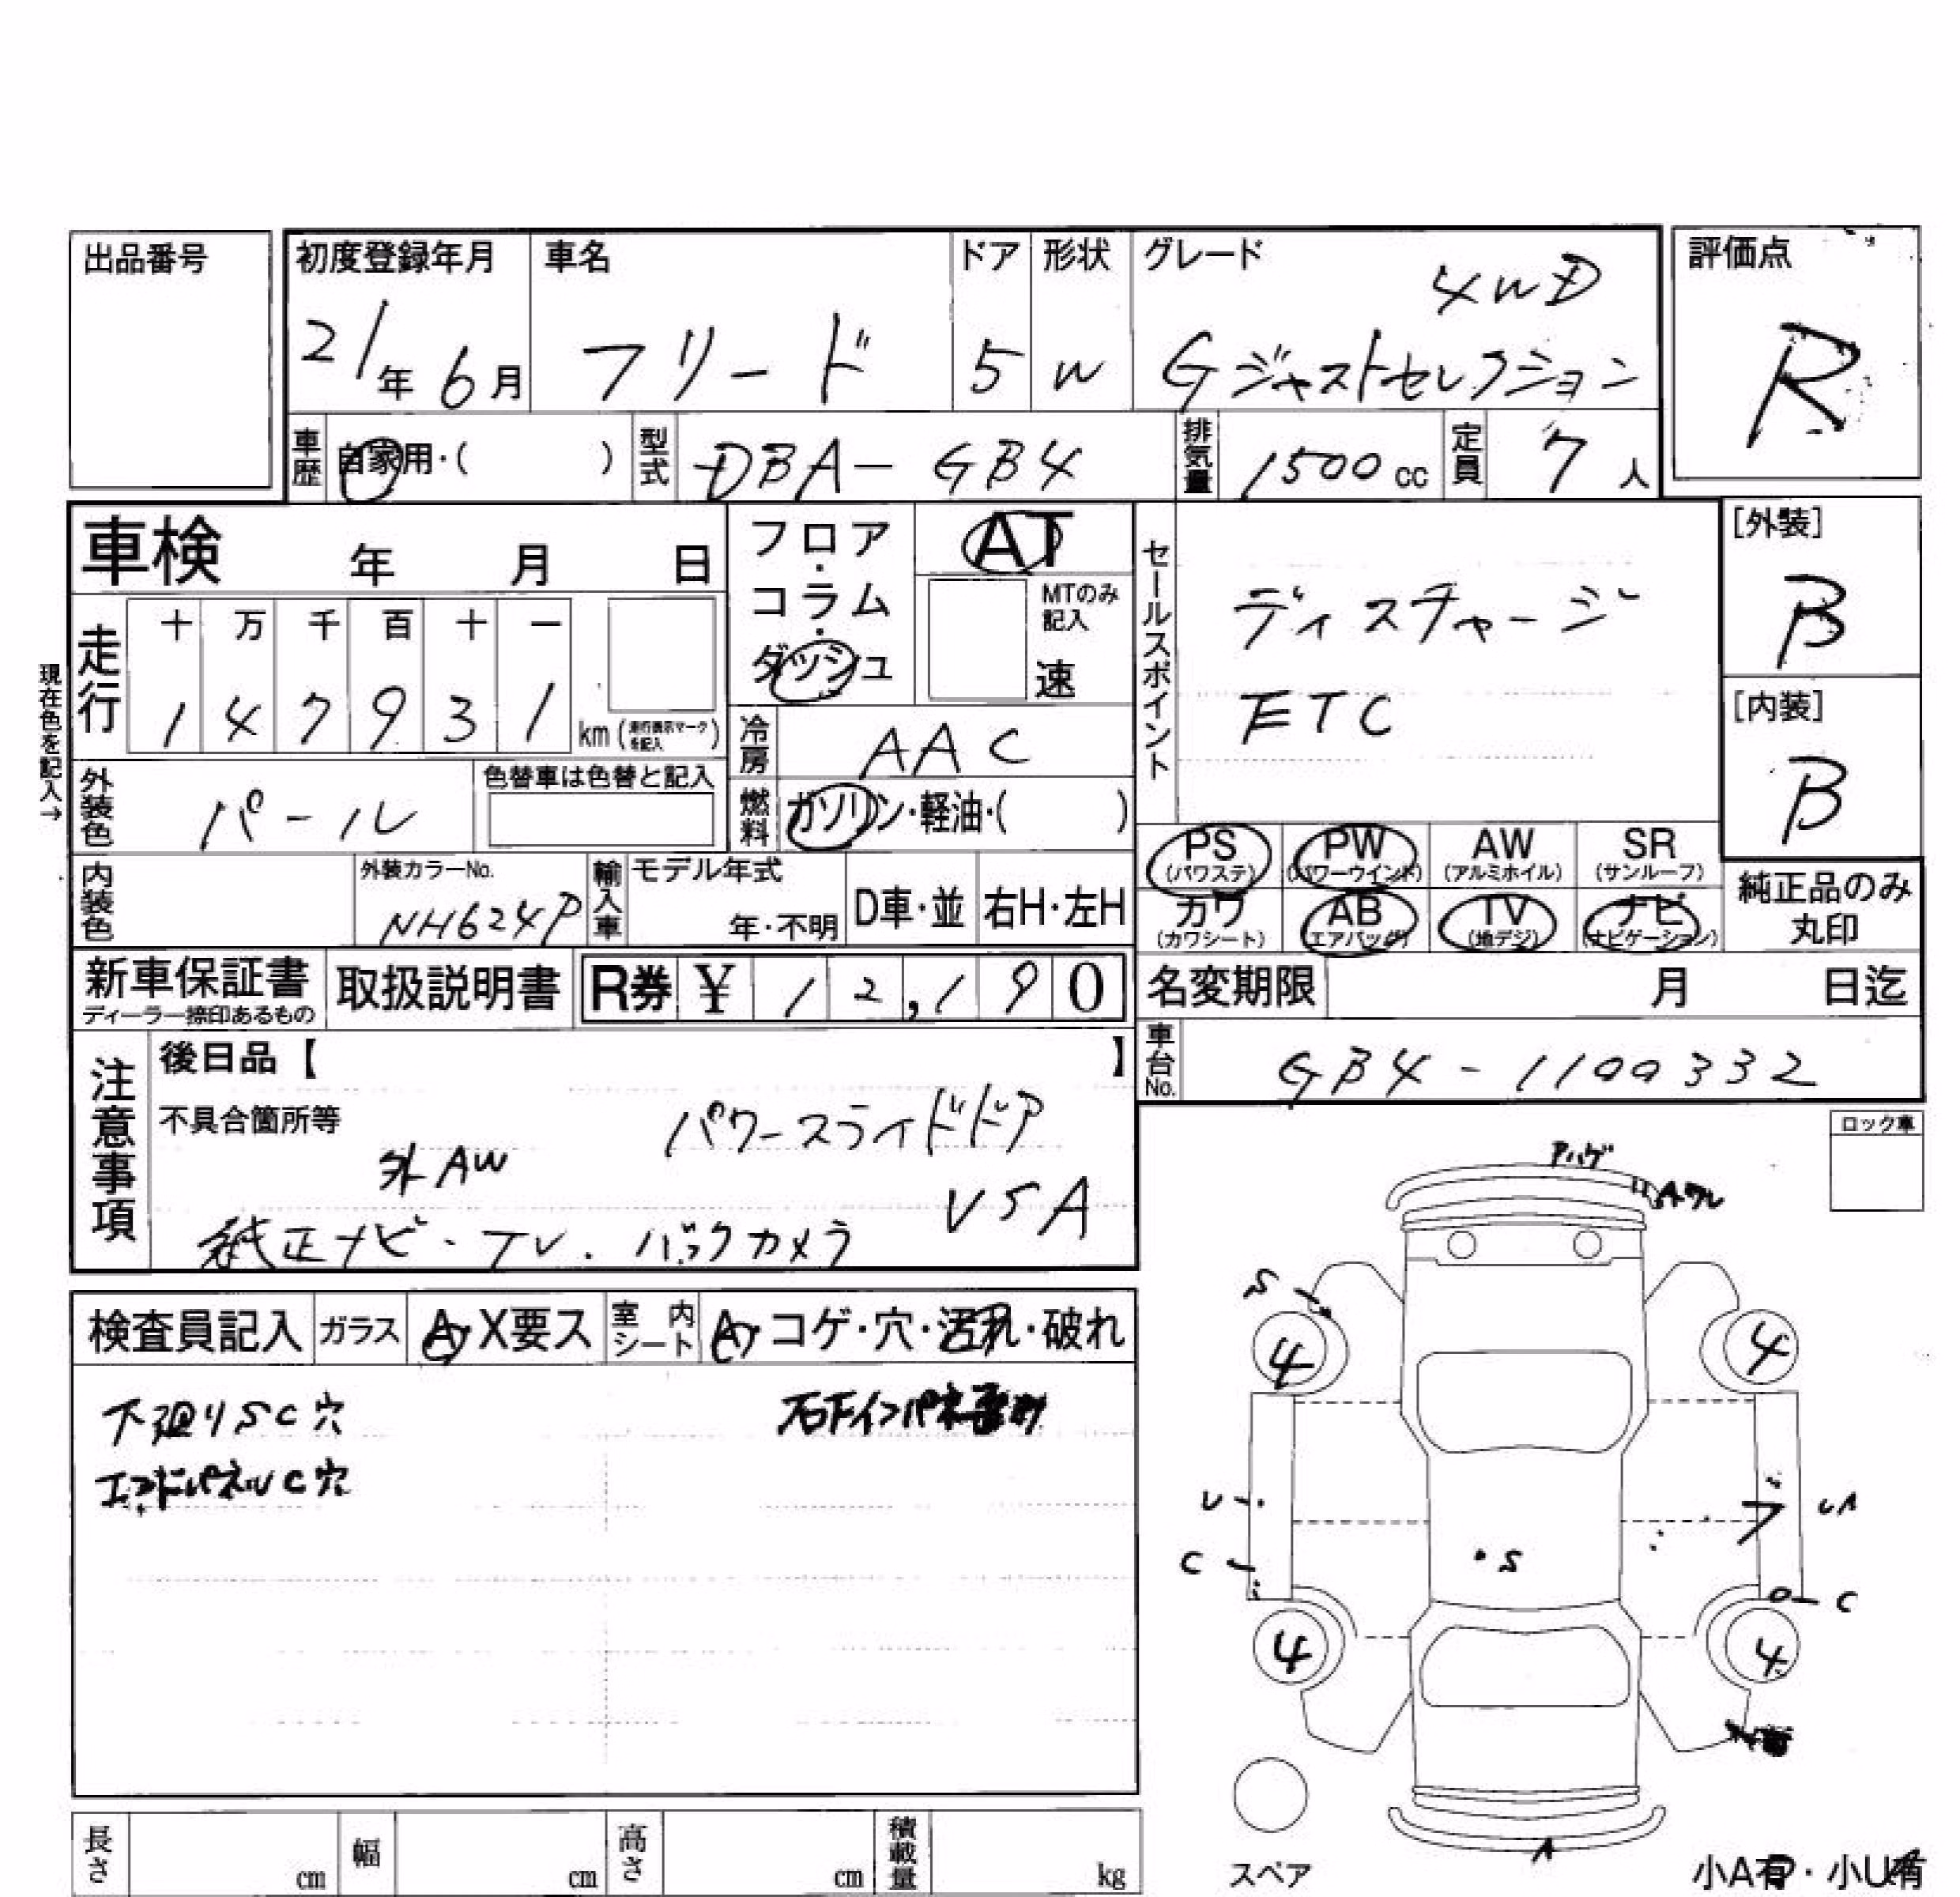 出品番号
初度登録年月
21年 6月
車名
フリード
ドア
5
形状
W
グレード
4WD
Gジャストセレクション
評価点
R
車歴
自家用・( )
型式
DBA-GB4
排気量
1500 cc
定員
7 人
車検 年 月 日
フロア・
コラム・
ダッシュ
AT
MTのみ
記入
速
セールスポイント
ディスチャージ
ETC
[外装]
B
[内装]
B
現在色を記入→
走行
十 万 千 百 十 一
1 4 7 9 3 1 km (走行表示マークを記入)
冷房
AAC
外装色
パール
色替車は色替と記入
燃料
ガソリン・軽油・( )
PS
(パワステ)
PW
(パワーウインド)
AW
(アルミホイル)
SR
(サンルーフ)
カワ
(カワシート)
AB
(エアバッグ)
TV
(地デジ)
ナビ
(ナビゲーション)
純正品のみ
丸印
内装色
外装カラーNo.
NH624P
輸入車
モデル年式
年・不明
D車・並
右H・左H
新車保証書
ディーラー捺印あるもの
取扱説明書
R券 ¥ 12,190
名変期限 月 日迄
車台No.
GB4-1100332
注意事項
後日品【 】
不具合箇所等
パワースライドドア
外AW
VSA
純正ナビ・TV. バックカメラ
ロック車
アハゲ
Aワレ
S
4
4
U
C
S
UA
C
4
4
A
スペア
小A有・小U有
検査員記入
ガラス
A・X要ス
室内シート
A・コゲ・穴・汚れ・破れ
下廻りSC穴
エンドパネルC穴
長さ cm
幅 cm
高さ cm
積載量 kg